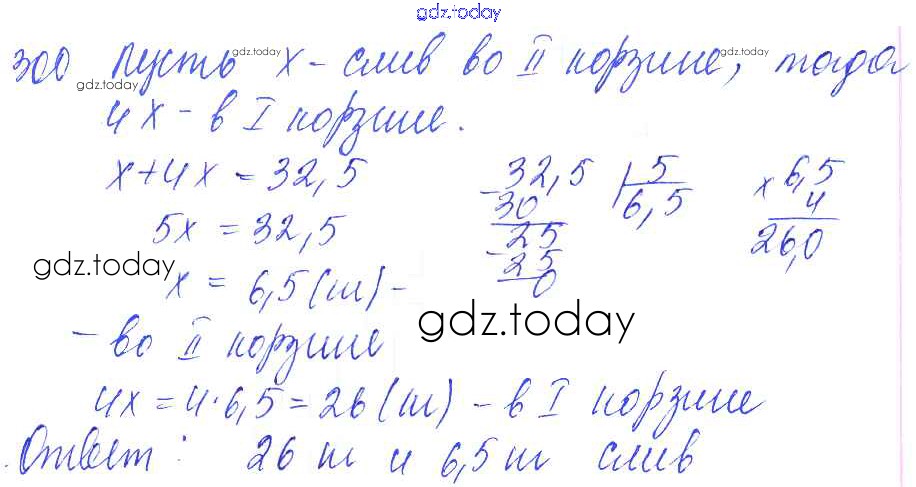 gdz.today
300 Пусть x - слив во II корзине, тогда
gdz.today gdz.today gdz.today
gdz.today
4x - в I корзине.
x + 4x = 32,5
5x = 32,5
gdz.today
x = 6,5 (кг) -
- во II корзине
gdz.today
4x = 4·6,5 = 26 (кг) - в I корзине
Ответ: 26 кг и 6,5 кг слив
- 32,5 | 5
30 6,5
- 25
25
0
x 6,5
4
26,0